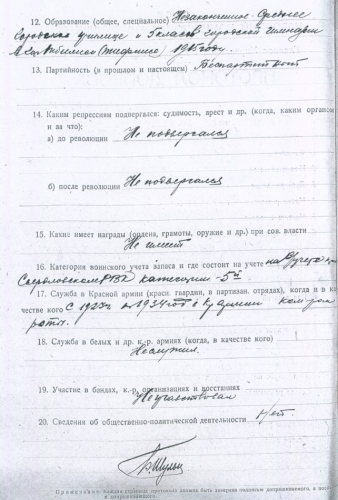 12. Образование (общее, специальное) Незаконченное-Среднее
Городское училище и 5 классов городской гимназии
в 1915 году.
13. Партийность (в прошлом и настоящем) Беспартийный
14. Каким репрессиям подвергался: судимость, арест и др. (когда, каким органом
и за что):
а) до революции Не подвергался
б) после революции Не подвергался
15. Какие имеет награды (ордена, грамоты, оружие и др.) при сов. власти
Не имеет
16. Категория воинского учета запаса и где состоит на учете на учете при
Свердловском РВК категории -5й
17. Служба в Красной армии (красн. гвардии, в партизан. отрядах), когда и в ка-
честве кого С 1927 по 1934 год в Кр армии ком
роты.
18. Служба в белых и др. к.-р. армиях (когда, в качестве кого)
Не служил.
19. Участие в бандах, к.-р. организациях и восстаниях
Не участвовал
20. Сведения об общественно-политической деятельности Нет.
Примечание. Каждая страница протокола должна быть заверена подписью допрашиваемого, а последняя
и допрашивающего.